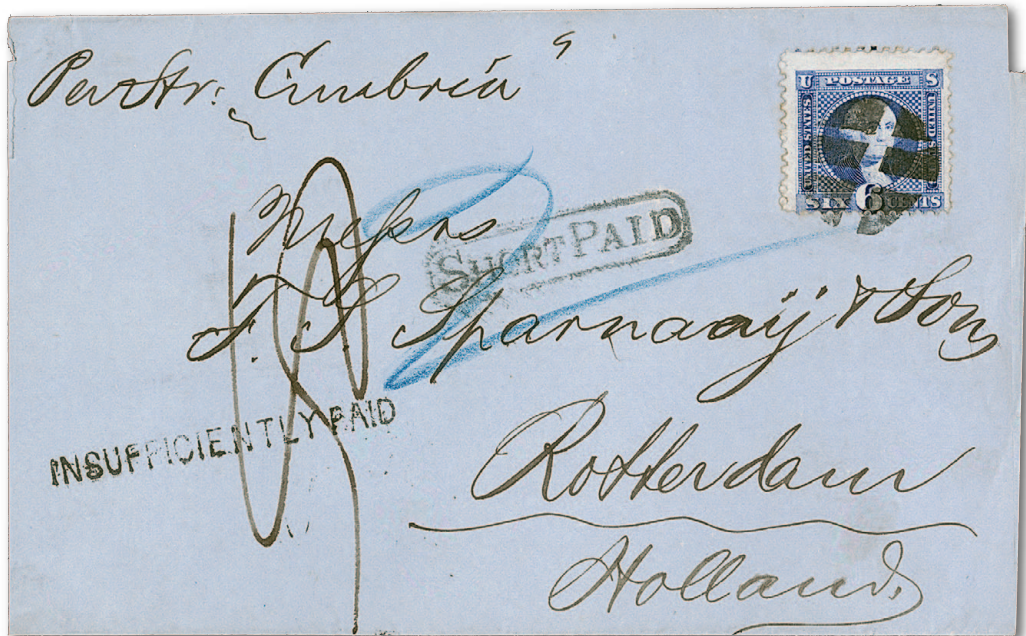 Per Str: „Cimbria“
U POSTAGE S
UNITED STATES
UNITED S
SIX 6 CENTS
Messrs
SHORT PAID
Sparnaaij & Son
INSUFFICIENTLY PAID
Rotterdam
Holland.